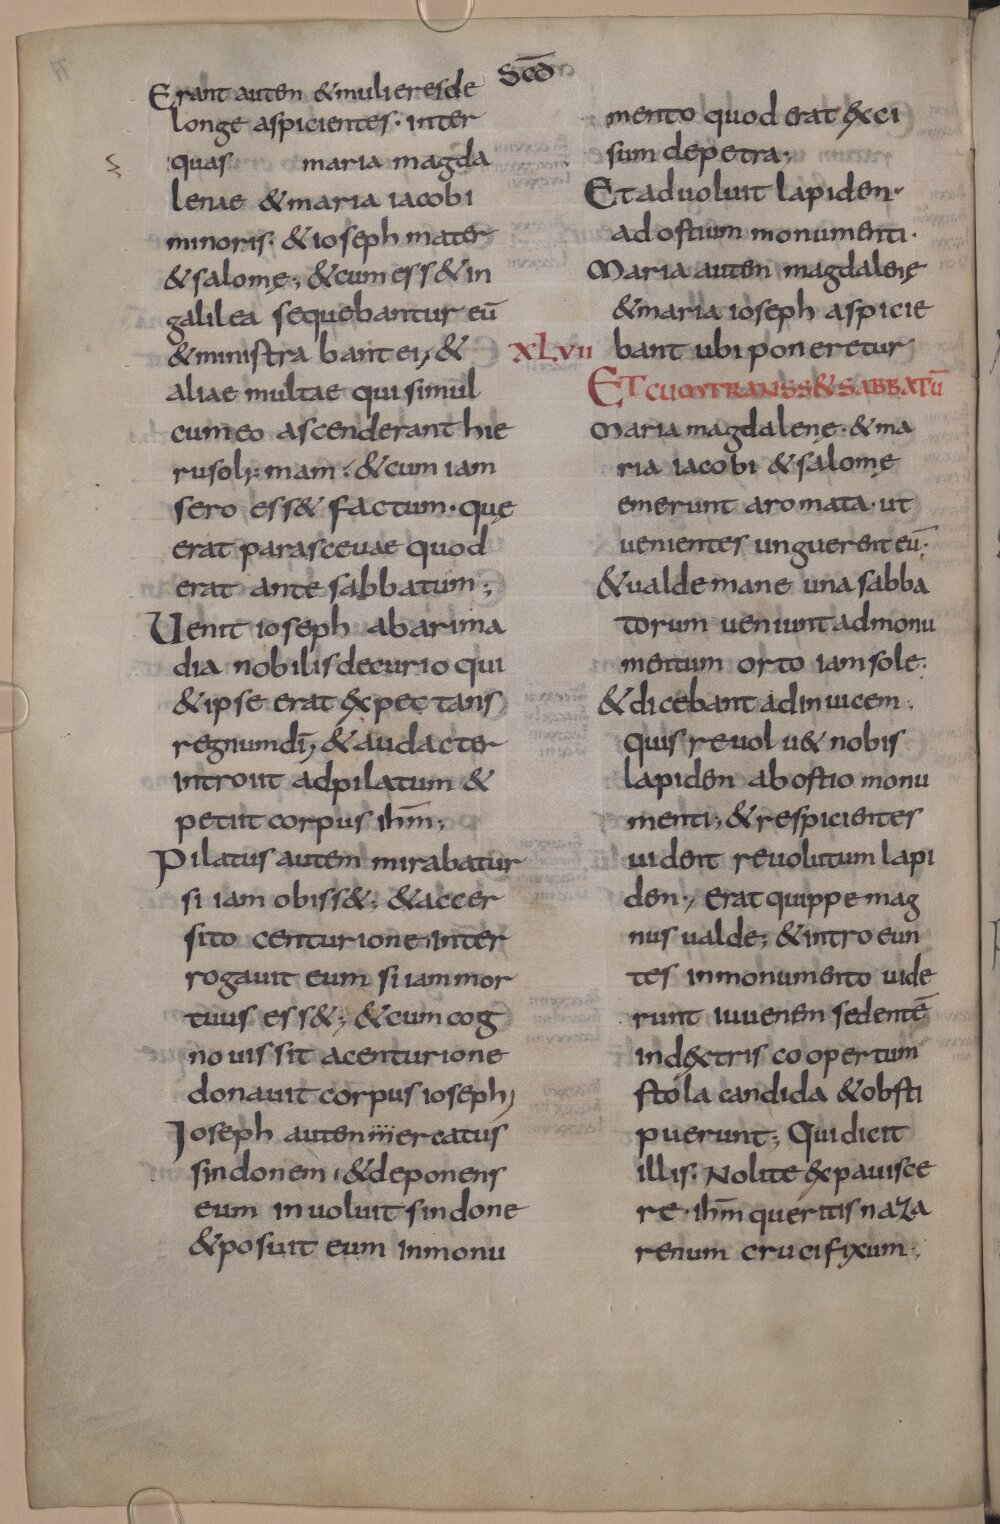 Scđ
Erant autem & mulieres de
longe aspicientes· inter
quas maria magda
lenae & maria iacobi
minoris· & ioseph mater
& salomę; & cum ess& in
galilea sequebantur eū
& ministrabant ei; &
aliae multae qui simul
cum eo ascenderant hie
rusolimam· & cum iam
sero ess& factum· quę
erat parasceuae quod
erat ante sabbatum;
Uenit ioseph abarima
dia nobilis decurio qui
& ipse erat expectans
regnum dī; & audacter
introiit ad pilatum &
petiit corpus ihm̄;
Pilatus autem mirabatur
si iam obiss&; & accer
sito centurione inter
rogauit eum si iam mor
tuus ess&; & cum cog
nouissit a centurione
donauit corpus ioseph;
Ioseph autem mercatus
sindonem· & deponens
eum inuoluit sindone
& posuit eum in monu
mento quod erat exci
sum de petra;
Et aduoluit lapiden·
ad ostium monumenti·
Maria autem magdalenę
& maria ioseph aspicie
XLvii bant ubi poneretur
ET CUM TRANSS& SABBATŪ
Maria magdalenę· & ma
ria iacobi & salomę
emerunt aromata· ut
uenientes unguerent eū;
& ualde mane una sabba
torum ueniunt ad monu
mentum orto iam sole·
& dicebant adinuicem;
Quis reuolu& nobis
lapiden ab ostio monu
menti; & respicientes
uident reuolutum lapi
den; erat quippe mag
nus ualde; & introeun
tes in monumento uide
runt iuuenem sedentē
in dextris coopertum
stola candida & obsti
puerunt; Qui dicit
illis· Nolite expauisce
re· ihm̄ queritis naza
renum crucifixum;